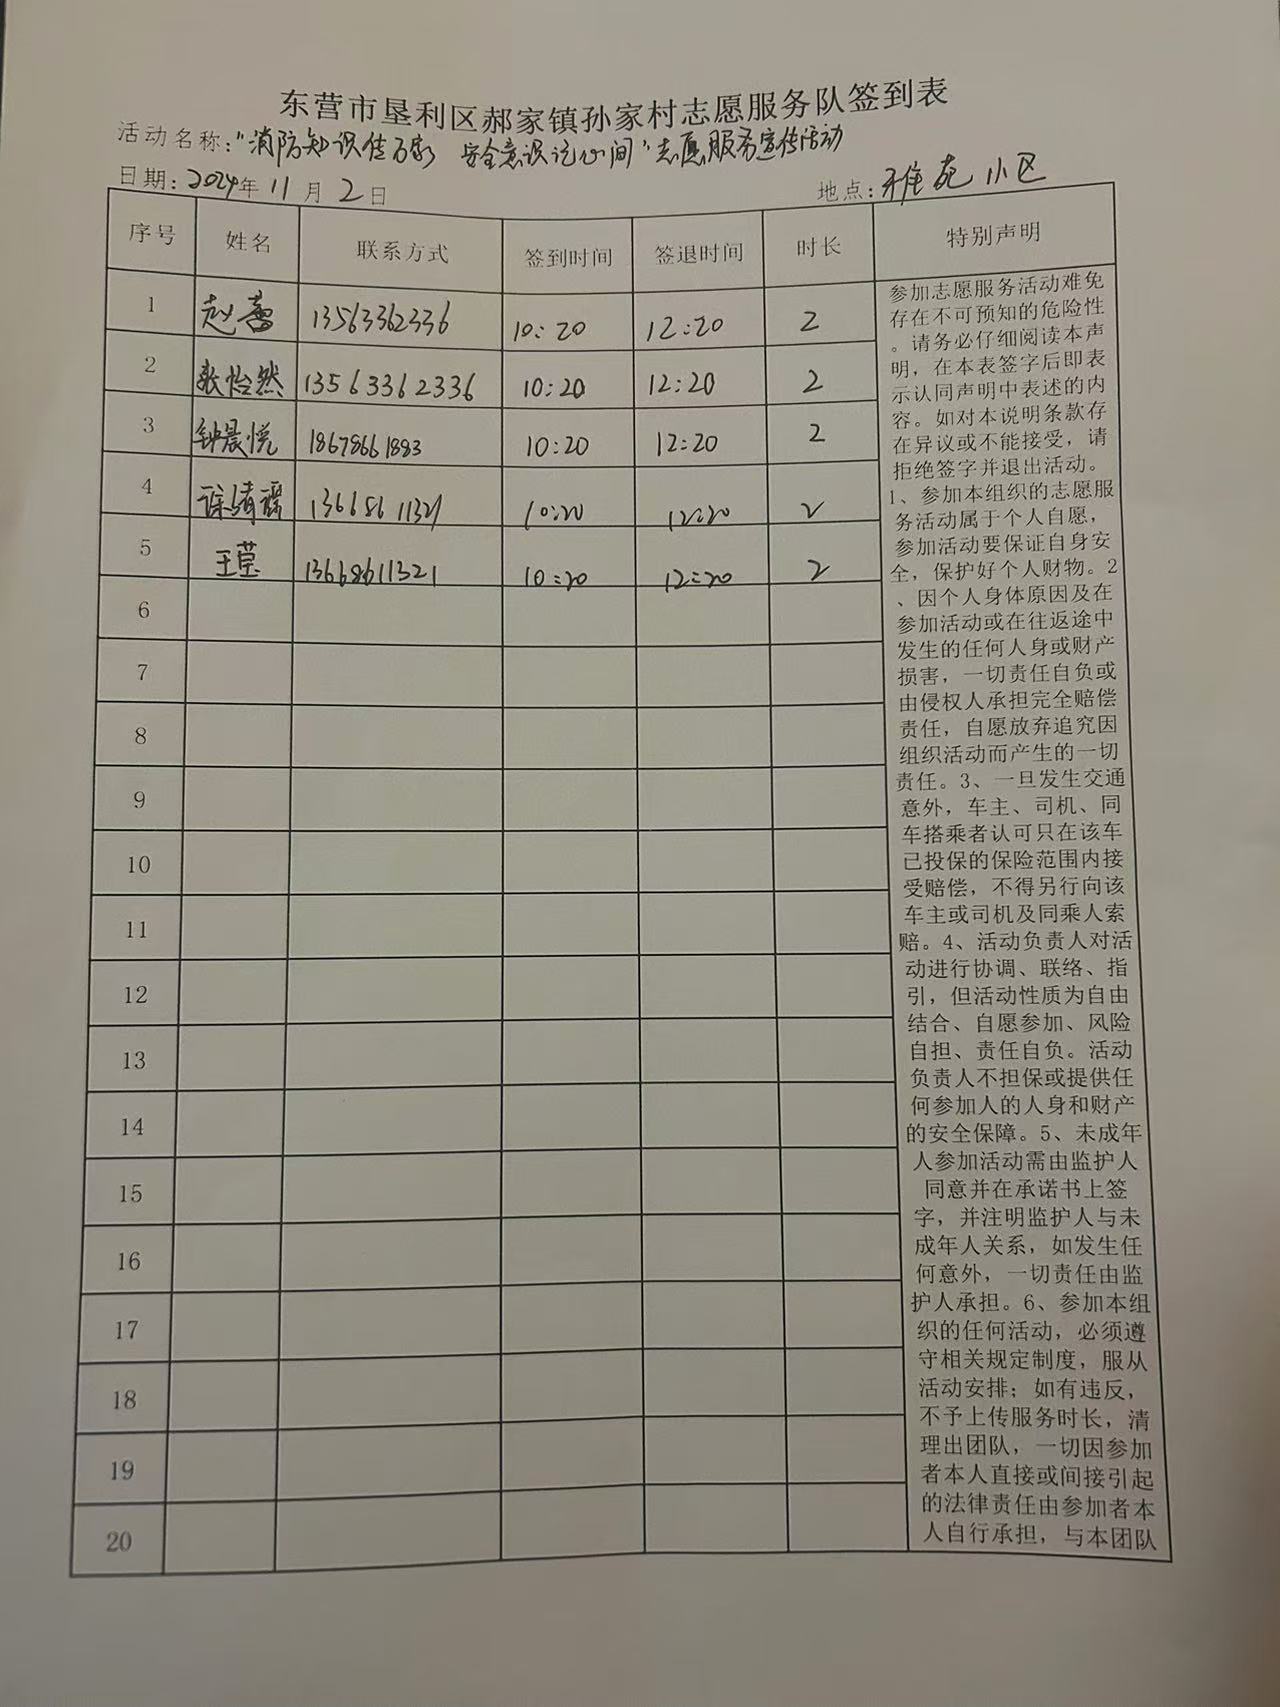 东营市垦利区郝家镇孙家村志愿服务队签到表
活动名称:"消防知识传万家 安全意识记心间"志愿服务宣传活动
日期:2024年11月2日 地点:雅苑小区
序号 姓名 联系方式 签到时间 签退时间 时长 特别声明
1 赵蕾 13563362336 10:20 12:20 2
2 张怡然 13563362336 10:20 12:20 2
3 钟晨悦 18678661883 10:20 12:20 2
4 13668611321 10:20 12:20 2
5 王莹 13668611321 10:20 12:20 2
6
7
8
9
10
11
12
13
14
15
16
17
18
19
20
参加志愿服务活动难免
存在不可预知的危险性
。请务必仔细阅读本声
明,在本表签字后即表
示认同声明中表述的内
容。如对本说明条款存
在异议或不能接受,请
拒绝签字并退出活动。
1、参加本组织的志愿服
务活动属于个人自愿,
参加活动要保证自身安
全,保护好个人财物。2
、因个人身体原因及在
参加活动或在往返途中
发生的任何人身或财产
损害,一切责任自负或
由侵权人承担完全赔偿
责任,自愿放弃追究因
组织活动而产生的一切
责任。3、一旦发生交通
意外,车主、司机、同
车搭乘者认可只在该车
已投保的保险范围内接
受赔偿,不得另行向该
车主或司机及同乘人索
赔。4、活动负责人对活
动进行协调、联络、指
引,但活动性质为自由
结合、自愿参加、风险
自担、责任自负。活动
负责人不担保或提供任
何参加人的人身和财产
的安全保障。5、未成年
人参加活动需由监护人
同意并在承诺书上签
字,并注明监护人与未
成年人关系,如发生任
何意外,一切责任由监
护人承担。6、参加本组
织的任何活动,必须遵
守相关规定制度,服从
活动安排;如有违反,
不予上传服务时长,清
理出团队,一切因参加
者本人直接或间接引起
的法律责任由参加者本
人自行承担,与本团队